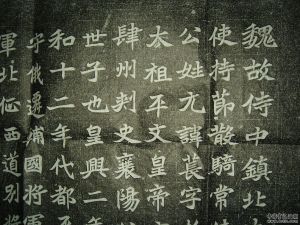 魏故侍中鎮北
使持節散騎常
公姓元諱萇字
太祖平文皇帝
肆州刺史襄陽
世子也皇興二年
和十二年代都平
守俄遷浦國將軍
軍北征西道別將